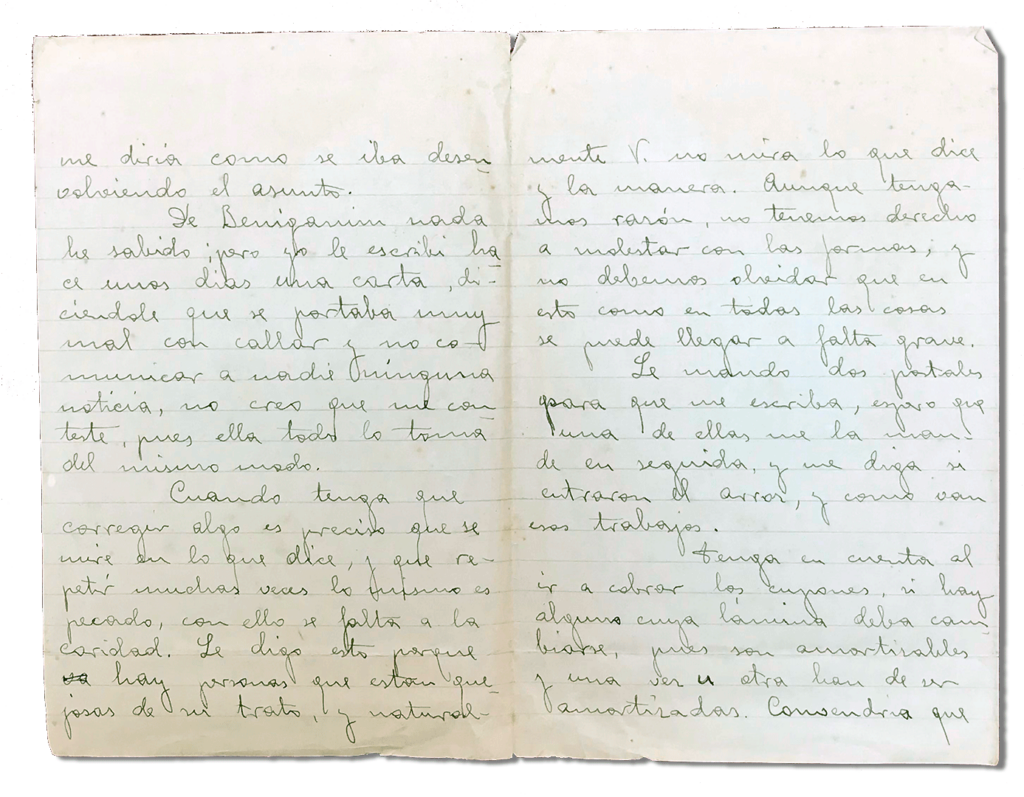 me diria como se iba desen
volviendo el asunto.
De Beniganim nada
he sabido; pero yo le escribi ha
ce unos dias una carta, di-
ciéndole que se portaba muy
mal con callar y no co-
municar a nadie ninguna
noticia, no creo que me con
teste, pues ella todo lo toma
del mismo modo.
Cuando tenga que
corregir algo es preciso que se
mire en lo que dice, y que re-
petir muchas veces lo mismo es
pecado, con ello se falta a la
caridad. Le digo esto porque
hay personas que estan que-
josas de su trato, y natural-
mente V. no mira lo que dice
y la manera. Aunque tenga-
mos rasón, no tenemos derecho
a molestar con las formas; y
no debemos olvidar que en
esto como en todas las cosas
se puede llegar a falta grave.
Le mando dos postales
para que me escriba, espero que
una de ellas me la man-
de en seguida, y me diga si
entraron el arros, y como van
esos trabajos.
Tenga en cuenta al
ir a cobrar los cupones, si hay
alguno cuya lámina deba cam-
biarse, pues son amortisables
y una ves u otra han de ser
amortisadas. Convendria que